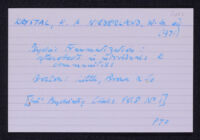 KRYSTAL, H & NIEDERLAND, W. G. eds
(1971)
Psychic Traumatization:
aftereffects in individuals &
communities
Boston: Little, Brown & Co
[Int. Psychiatry Clinics Vol 8 No 1]
PTO